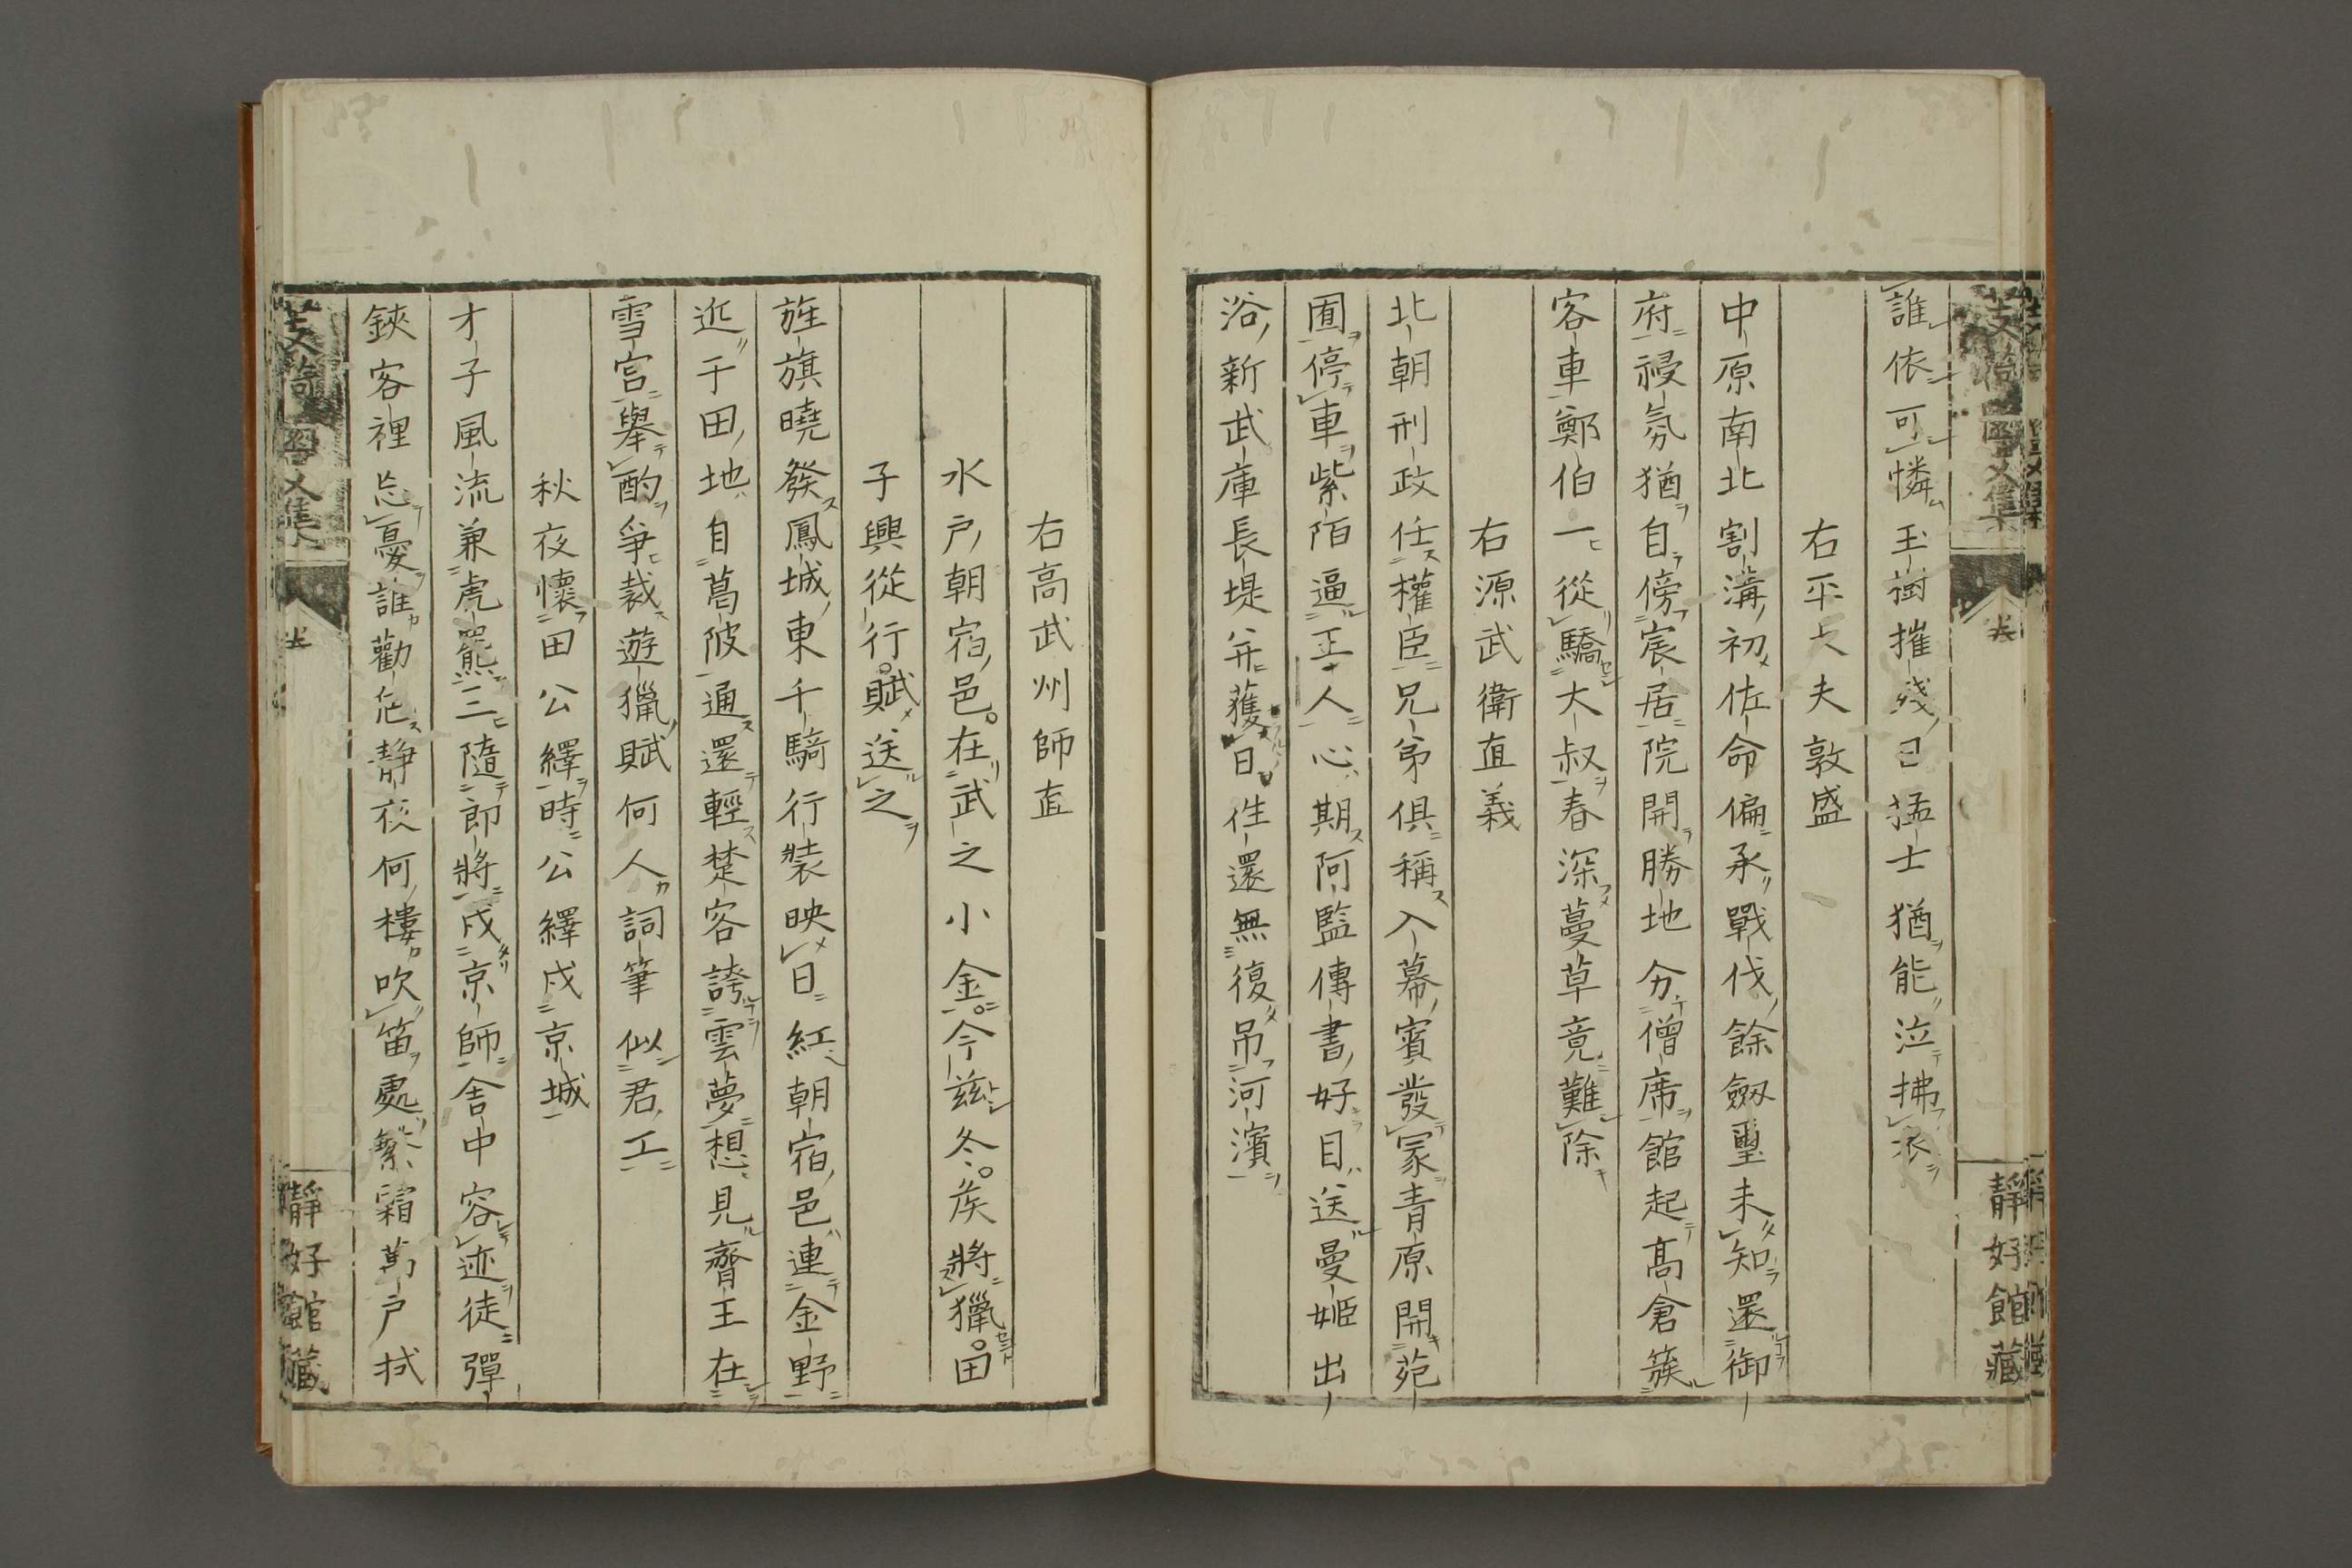 誰依可憐玉樹摧殘已猛士猶能泣拂衣
右平大夫敦盛
中原南北割溝初佐命偏承戰伐餘劔璽未知還御
府祲氛猶自傍宸居院開勝地分僧席館起高倉簇
客車鄭伯一從驕大叔春深蔓草竟難除
右源武衛直義
北朝刑政任權臣兄弟俱稱入幕賓發冢青原開苑
囿停車紫陌逼王人心期阿監傳書好目送曼姬出
浴新武庫長堤并獲日往還無復吊河濱
右高武州師直
水戶朝宿邑在武之小金今茲冬矦將獵田
子興從行賦送之
旌旗曉發鳳城東千騎行裝映日紅朝宿邑連金野
近于田地自葛陂通還輕楚客誇雲夢想見齊王在
雪宮舉酌爭裁遊獵賦何人詞筆似君工
秋夜懷田公繹時公繹戍京城
才子風流兼虎羆二隨郎將戍京師舍中容迹徒彈
鋏客裡忘憂誰勸卮靜夜何樓吹笛處繁霜萬戶拭
靜好館藏
靜好館藏